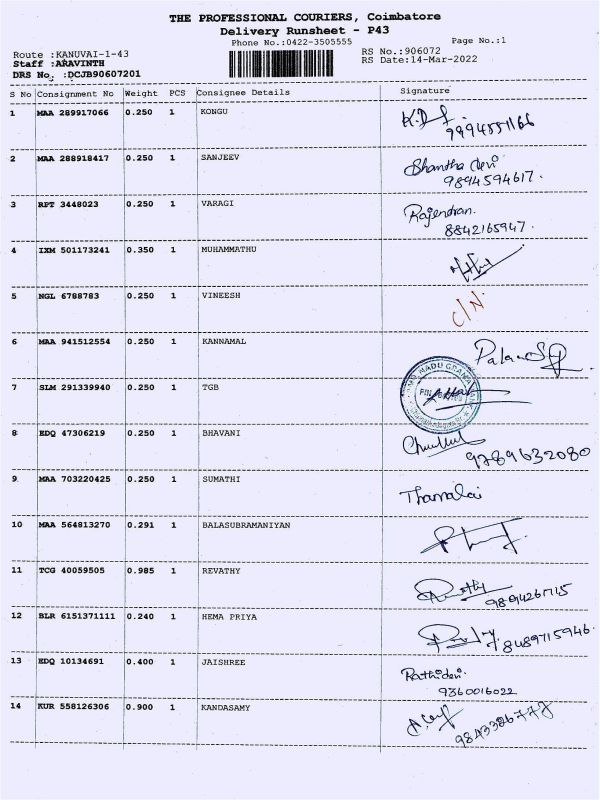 THE PROFESSIONAL COURIERS, Coimbatore
Delivery Runsheet - P43
Phone No.:0422-3505555
Page No.:1
Route :KANUVAI-1-43
RS No.:906072
Staff :ARAVINTH
RS Date:14-Mar-2022
DRS No. :DCJB90607201
S No Consignment No Weight PCS Consignee Details Signature
1 MAA 289917066 0.250 1 KONGU
9994551166
2 MAA 288918417 0.250 1 SANJEEV Shantha devi
9894594617.
3 RPT 3448023 0.250 1 VARAGI Rajendran.
8842165947.
4 IXM 501173241 0.350 1 MUHAMMATHU
5 NGL 6788783 0.250 1 VINEESH C/N.
6 MAA 941512554 0.250 1 KANNAMAL
7 SLM 291339940 0.250 1 TGB
8 EDQ 47306219 0.250 1 BHAVANI
9789632080
9 MAA 703220425 0.250 1 SUMATHI Thamalai
10 MAA 564813270 0.291 1 BALASUBRAMANIYAN
11 TCG 40059505 0.985 1 REVATHY
12 BLR 6151371111 0.240 1 HEMA PRIYA
8489715946.
13 EDQ 10134691 0.400 1 JAISHREE Rathidevi.
9360016022
14 KUR 558126306 0.900 1 KANDASAMY